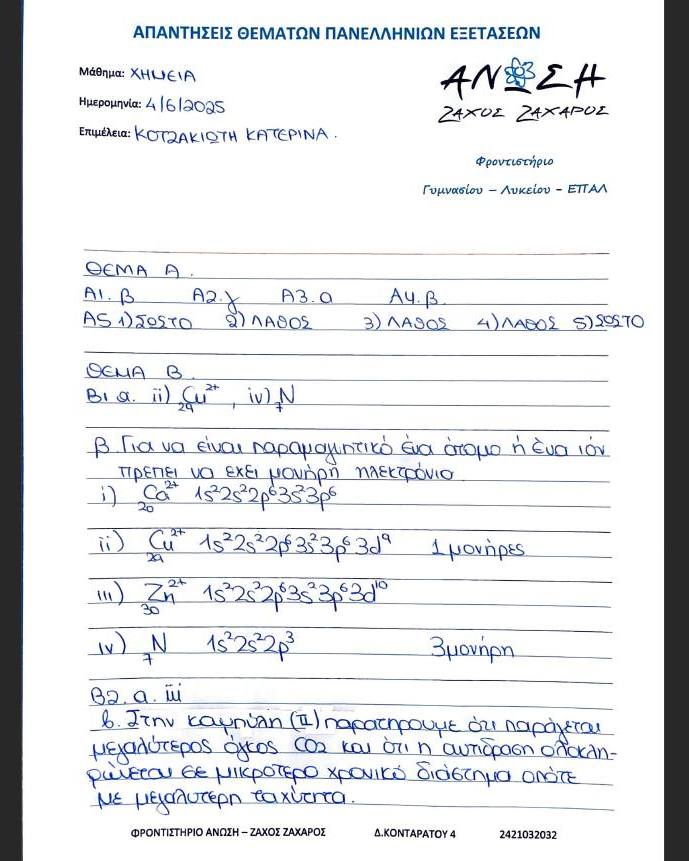 ΑΠΑΝΤΗΣΕΙΣ ΘΕΜΑΤΩΝ ΠΑΝΕΛΛΗΝΙΩΝ ΕΞΕΤΑΣΕΩΝ
Μάθημα: ΧΗΜΕΙΑ
Ημερομηνία: 4/6/2025
Επιμέλεια: ΚΟΤΖΑΚΙΩΤΗ ΚΑΤΕΡΙΝΑ.
ΑΝΩΣΗ
ΖΑΧΟΣ ΖΑΧΑΡΟΣ
Φροντιστήριο
Γυμνασίου – Λυκείου – ΕΠΑΛ
ΘΕΜΑ Α.
Α1. β Α2. γ Α3. α Α4. β.
Α5 1) ΣΩΣΤΟ 2) ΛΑΘΟΣ 3) ΛΑΘΟΣ 4) ΛΑΘΟΣ 5) ΣΩΣΤΟ
ΘΕΜΑ Β.
Β1 α. ii) ₂₉Cu²⁺, iv) ₇N
β. Για να είναι παραμαγνητικό ένα άτομο ή ένα ιόν
πρέπει να έχει μονήρη ηλεκτρόνιο
i) ₂₀Ca²⁺ 1s²2s²2p⁶3s²3p⁶
ii) ₂₉Cu²⁺ 1s²2s²2p⁶3s²3p⁶3d⁹ 1 μονήρες
iii) ₃₀Zn²⁺ 1s²2s²2p⁶3s²3p⁶3d¹⁰
iv) ₇N 1s²2s²2p³ 3 μονήρη
Β2. α. iii
β. Στην καμπύλη (ΙΙ) παρατηρουμε ότι παράγεται
μεγαλύτερος όγκος CO2 και ότι η αντίδραση ολοκλη-
ρώνεται σε μικρότερο χρονικό διάστημα οπότε
με μεγαλύτερη ταχύτητα.
ΦΡΟΝΤΙΣΤΗΡΙΟ ΑΝΩΣΗ – ΖΑΧΟΣ ΖΑΧΑΡΟΣ Δ.ΚΟΝΤΑΡΑΤΟΥ 4 2421032032